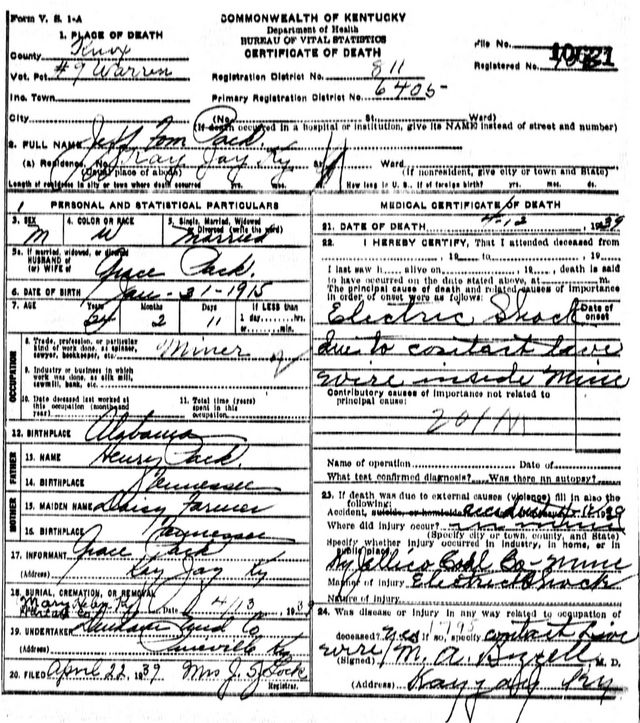 Form V. S. 1-A
COMMONWEALTH OF KENTUCKY
Department of Health
BUREAU OF VITAL STATISTICS
CERTIFICATE OF DEATH
File No.
Registered No.
1. PLACE OF DEATH
County Knox
Vot. Pct #9 Warren
Registration District No. 811
Inc. Town
Primary Registration District No. 6405
City (No. St. Ward)
(If death occurred in a hospital or institution, give its NAME instead of street and number)
2. FULL NAME Jeff Tom Pack.
(a) Residence, No. Kay Jay Ky St. Ward
(Usual place of abode) (If nonresident, give city or town and State)
Length of residence in city or town where death occurred yrs. mos. ds. How long in U. S., if of foreign birth? yrs. mos. ds.
PERSONAL AND STATISTICAL PARTICULARS
3. SEX M
4. COLOR OR RACE W
5. Single, Married, Widowed Divorced (write the word) Married
5a. If married, widowed, or divorced
HUSBAND of
(or) WIFE of Grace Pack.
6. DATE OF BIRTH Jan - 31 - 1915
7. AGE Years 24 Months 2 Days 11 If LESS than 1 day, hrs. or min.
OCCUPATION
8. Trade, profession, or particular kind of work done, as spinner, sawyer, bookkeeper, etc. Miner
9. Industry or business in which work was done, as silk mill, sawmill, bank, etc.
10. Date deceased last worked at this occupation (month and year)
11. Total time (years) spent in this occupation
12. BIRTHPLACE Alabama
FATHER
13. NAME Henry Pack.
14. BIRTHPLACE Tennessee
MOTHER
15. MAIDEN NAME Daisy Farmer
16. BIRTHPLACE Tennessee
17. INFORMANT Grace Pack
(Address) Kay Jay Ky
18. BURIAL, CREMATION, OR REMOVAL
Date 4/13 1939
19. UNDERTAKER
Pineville Ky
20. FILED April 22 1939 Mrs J. S. Lock
Registrar.
MEDICAL CERTIFICATE OF DEATH
21. DATE OF DEATH 4-12 1939
22. I HEREBY CERTIFY, That I attended deceased from
, 19 to , 19
I last saw h alive on , 19 , death is said
to have occurred on the date stated above, at m.
The principal cause of death and related causes of importance in order of onset were as follows:
Date of onset
Electric Shock
due to contact live
wire inside Mine
Contributory causes of importance not related to principal cause:
Name of operation Date of
What test confirmed diagnosis? Was there an autopsy?
23. If death was due to external causes (violence) fill in also the following:
Accident, suicide, or homicide
Where did injury occur? in mine
(Specify city or town, county, and State)
Specify whether injury occurred in industry, in home, or in public place
Ky Jellico Coal Co - Mine
Manner of injury Electric Shock
Nature of injury
24. Was disease or injury in any way related to occupation of
deceased? Yes If so, specify contact live
wire
(Signed) M. D.
(Address) Kay jay Ky